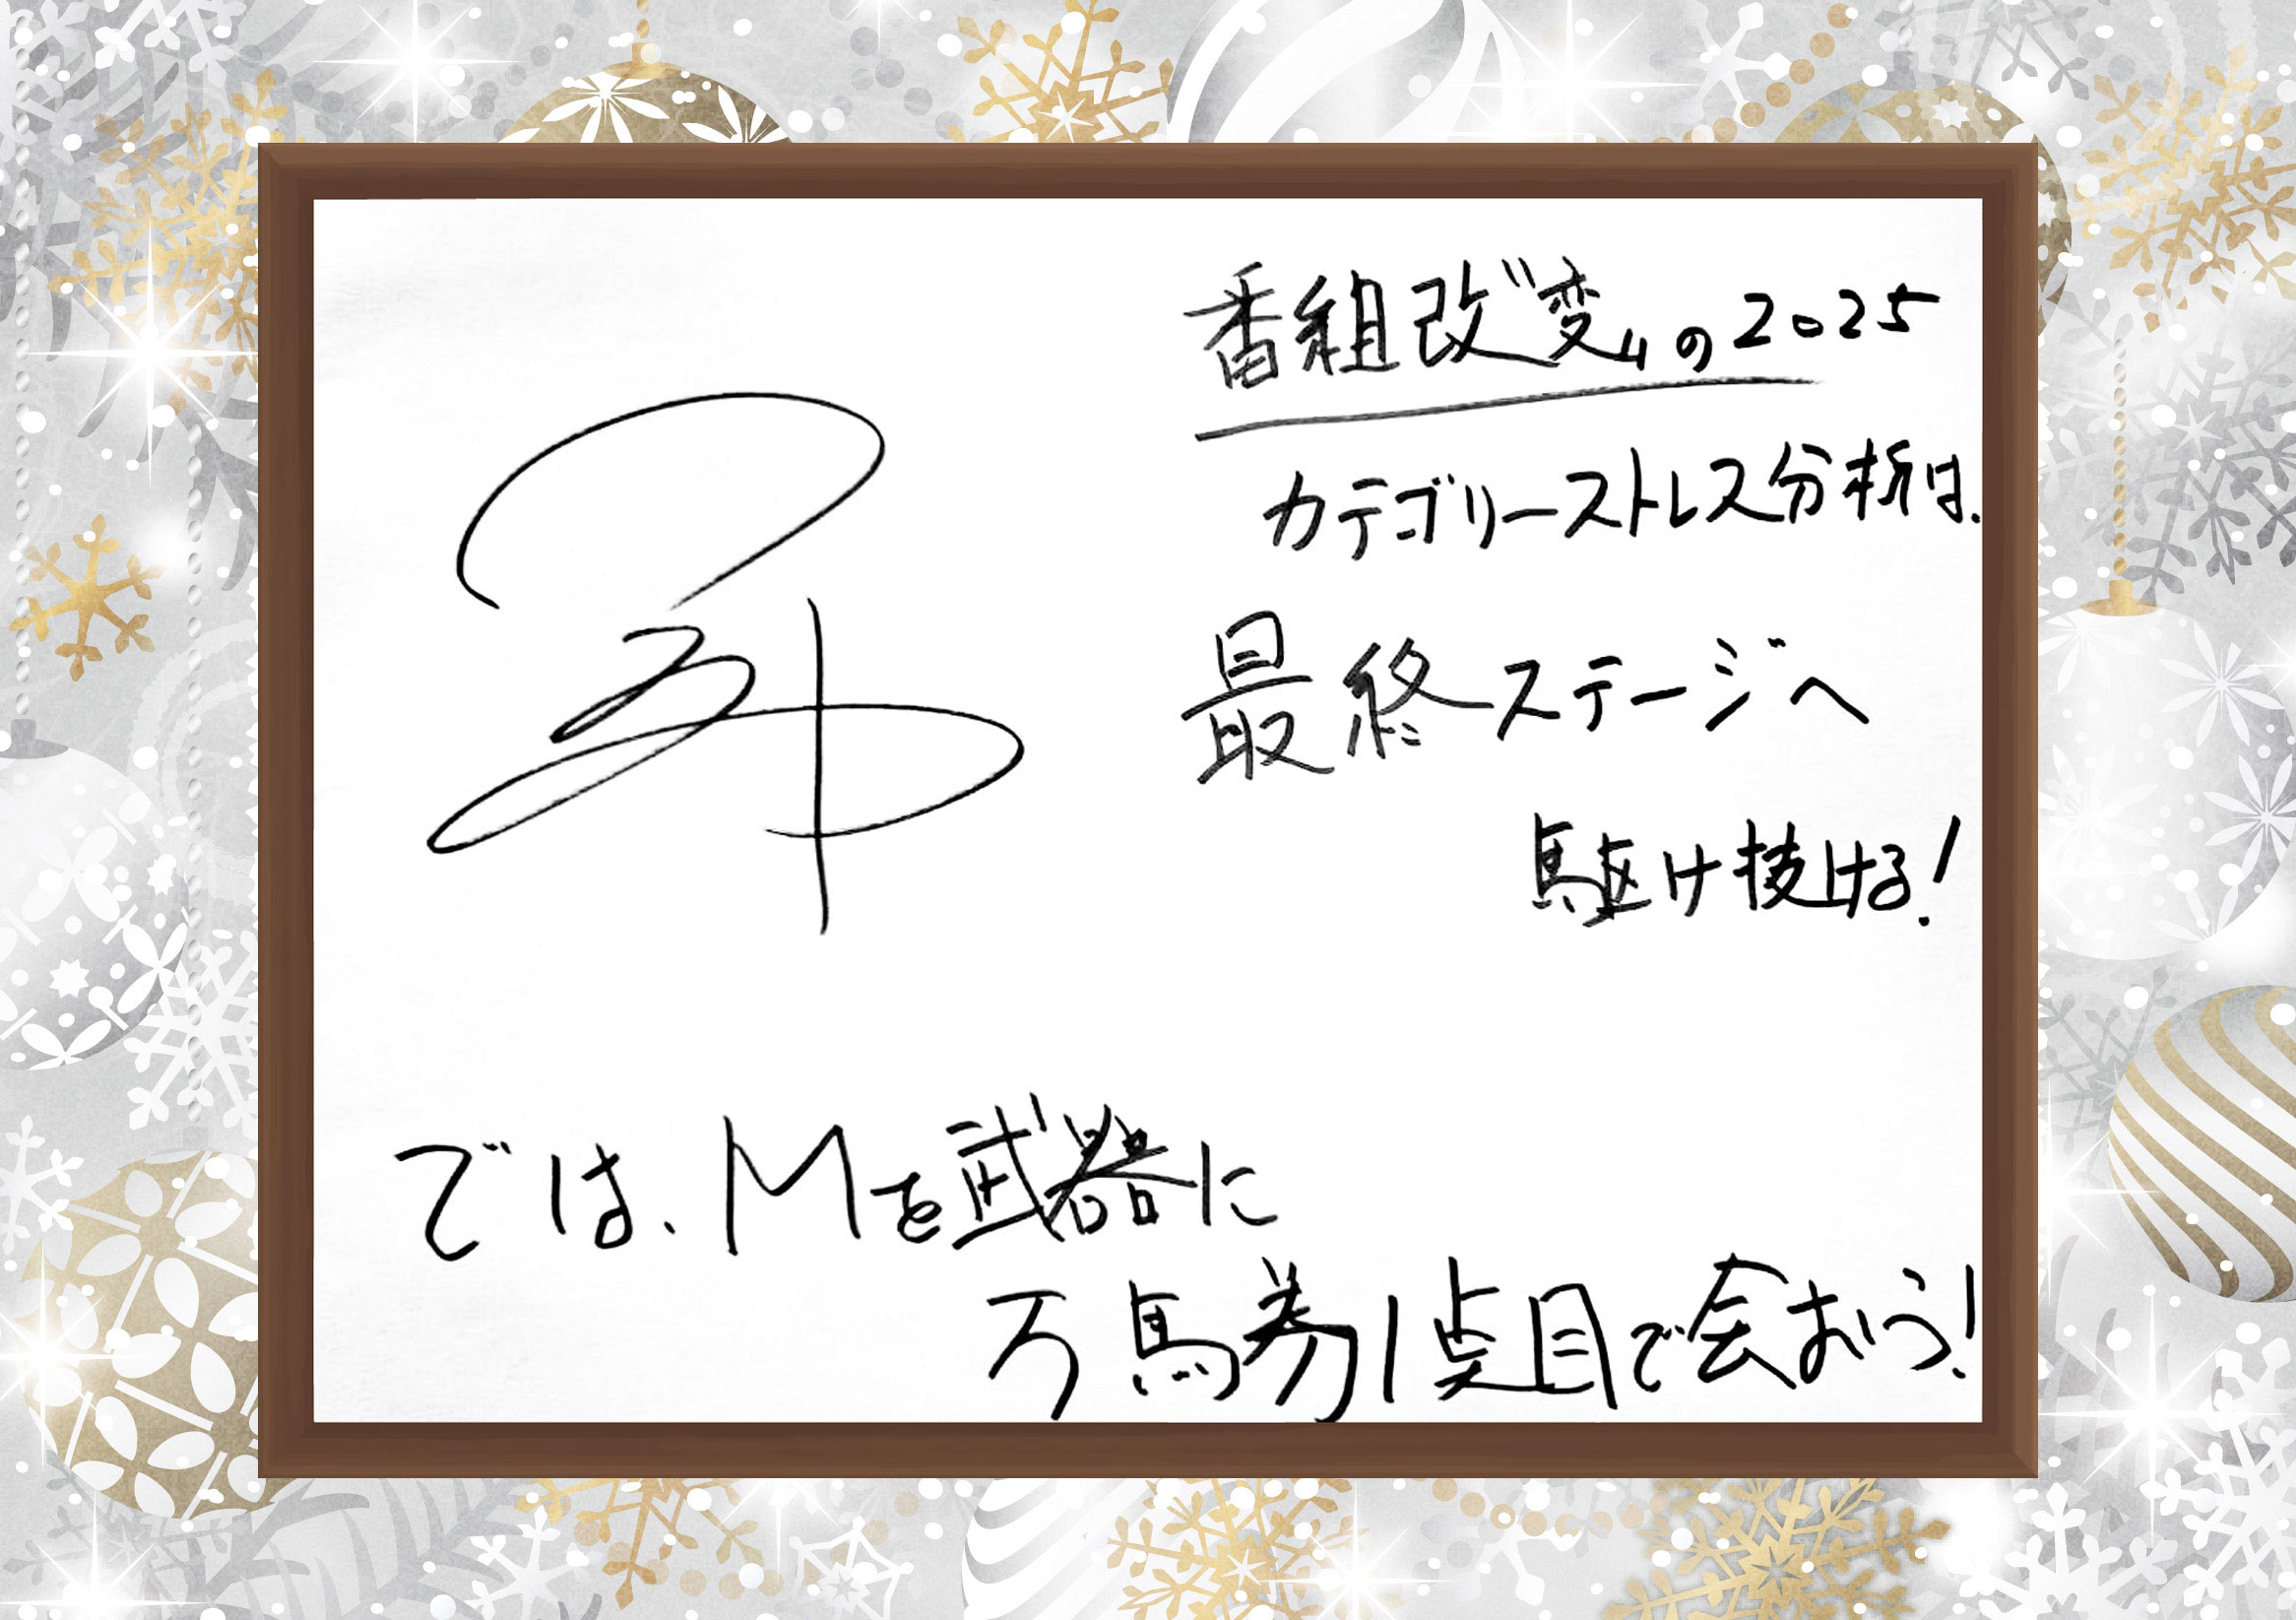 番組改〝変〟の2025
カテゴリーストレス分析は、
最終ステージへ
駆け抜ける!
では、Mを武器に
万馬券1点目で会おう!